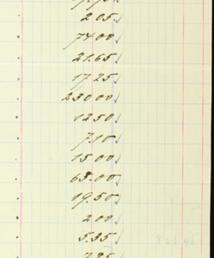 2.05
74.00
21.65
17.25
230.00
12.50
7.10
15.00
63.00
19.50
2.00
5.35